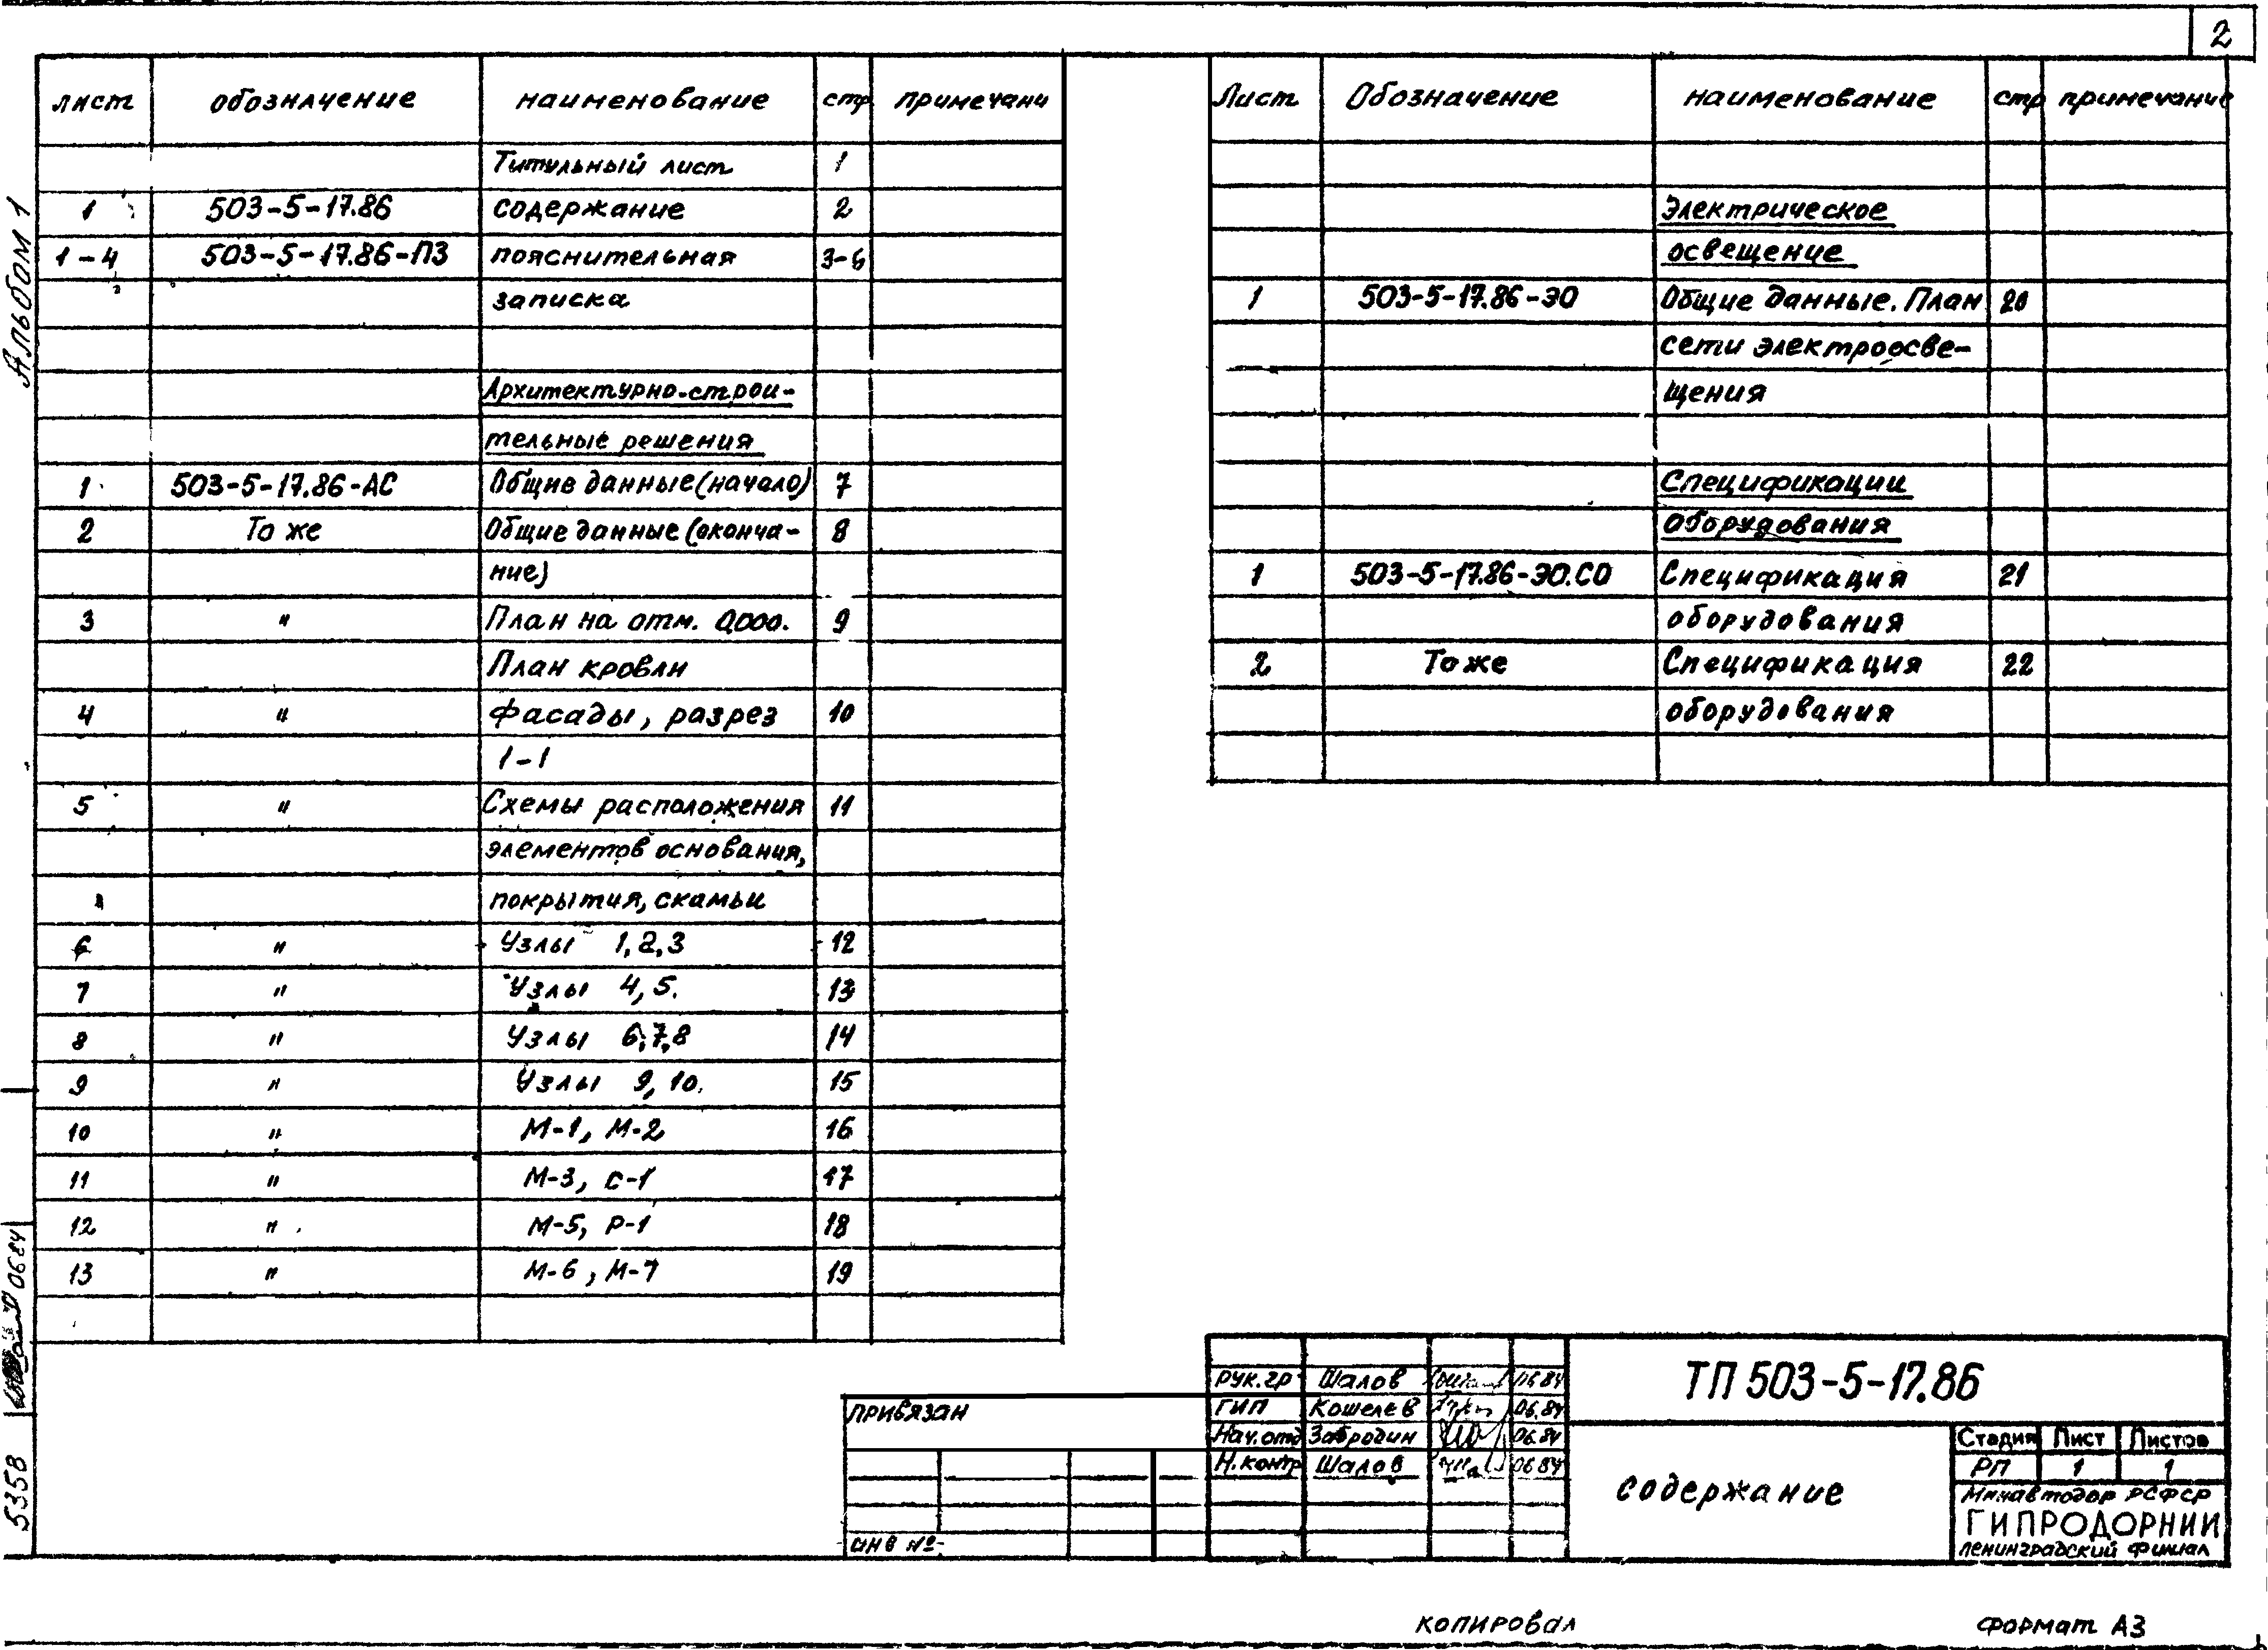 2
лист обозначение наименование стр примечани
Титульный лист 1
1 503-5-17.86 содержание 2
1-4 503-5-17.86-ПЗ пояснительная 3-6
записка
Архитектурно-строи-
тельные решения
1 503-5-17.86-АС Общие данные (начало) 7
2 То же Общие данные (оконча- 8
ние)
3 " План на отм. 0,000. 9
План кровли
4 " Фасады, разрез 10
1-1
5 " Схемы расположения 11
элементов основания,
покрытия, скамьи
6 " Узлы 1,2,3 12
7 " Узлы 4,5. 13
8 " Узлы 6,7,8 14
9 " Узлы 9,10. 15
10 " М-1, М-2 16
11 " М-3, С-1 17
12 " М-5, Р-1 18
13 " М-6, М-7 19
Лист Обозначение наименование стр примечание
Электрическое
освещение
1 503-5-17.86-ЭО Общие данные. План 20
сети электроосве-
щения
Спецификации
Оборудования
1 503-5-17.86-ЭО.СО Спецификация 21
оборудования
2 То же Спецификация 22
оборудования
Альбом 1
5358
0684
привязан
инв №
рук.гр Шалов 06.84
ГИП Кошелев 06.84
Нач.отд Забродин 06.84
Н.контр Шалов 06.84
ТП 503-5-17.86
содержание
Стадия Лист Листов
РП 1 1
Минавтодор РСФСР
ГИПРОДОРНИИ
Ленинградский филиал
копировал
Формат А3